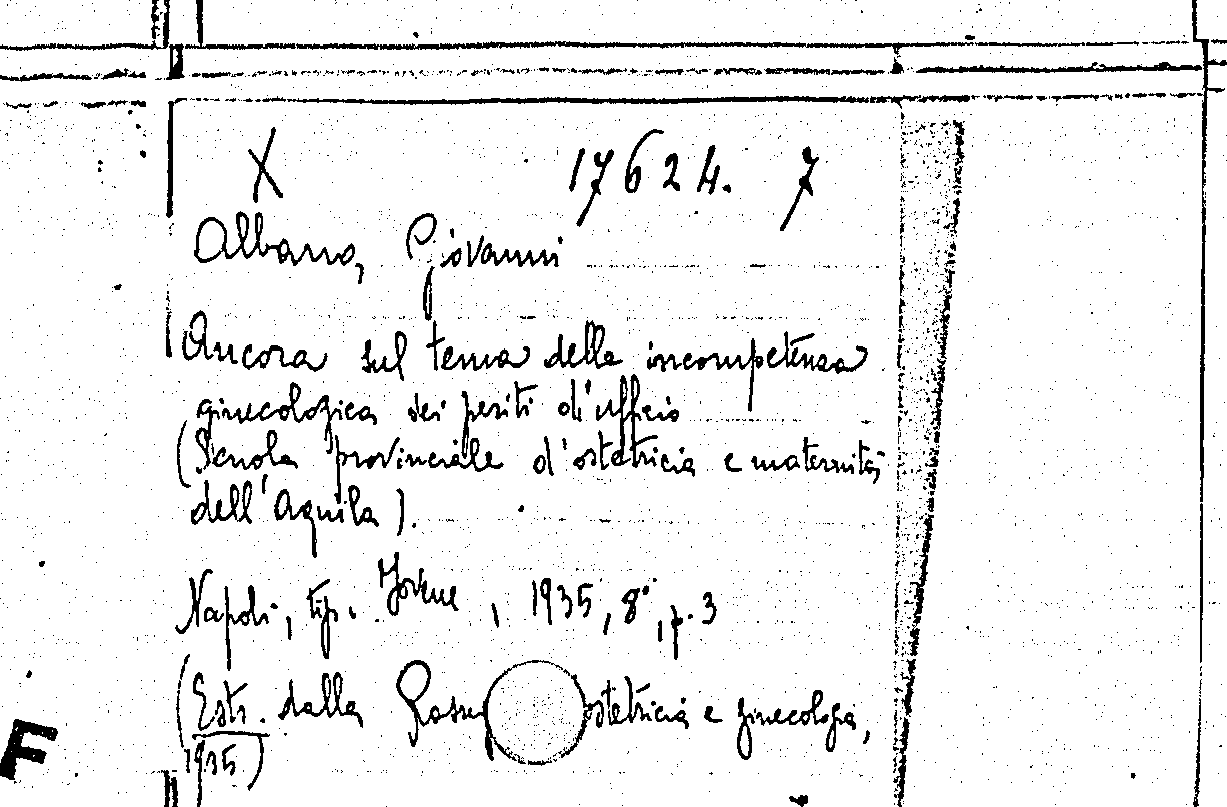 X 17624. 7
Albano, Giovanni
Ancora sul tema della incompetenza
ginecologica dei periti d'ufficio
(Scuola provinciale d'ostetricia e maternità
dell'Aquila).
Napoli, tip. Jovene, 1935, 8°, p. 3
(Estr. dalla Rass ostetricia e ginecologia,
1935)
F